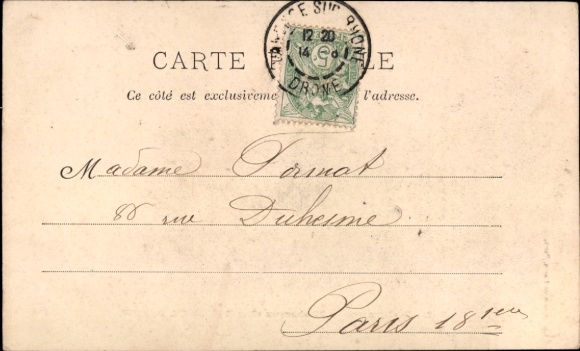 CARTE LE
Ce côté est exclusiveme l'adresse.
VALENCE SUR RHONE
12 20
14
DROME
5
Madame Dormat
86 rue Duhesme
Paris 18 eme